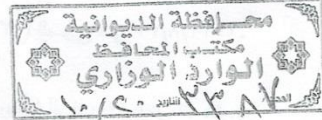 محافظة الديوانية
مكتب المحافظ
الوارد الوزاري
العدد ٣٣٨٧ التاريخ ١٠/٢٠